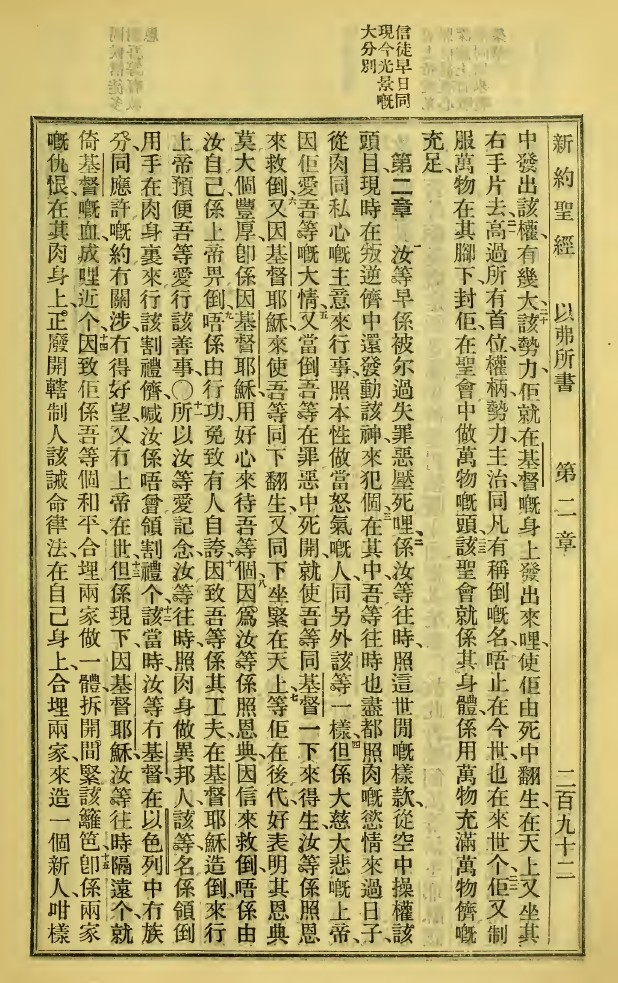 信徒早日同
現今光景嘅
大分別
新約聖經 以弗所書 第二章 二百九十二
中發出該權、有幾大、二十該勢力佢就在基督嘅身上發出來哩、使佢由死中翻生、在天上又坐其
右手片去、二一高過所有首位、權柄、勢力、主治、同凡有稱倒嘅名、唔止在今世、也在來世個、二二佢又制
服萬物在其腳下、封佢在聖會中做萬物嘅頭、二三該聖會就係其身體、係用萬物充滿萬物儕嘅
充足、
第二章 一汝等早係被尔過失罪惡壓死哩、二係汝等往時、照這世間嘅樣款、從空中操權該
頭目、現時在叛逆儕中還發動該神、來犯個、三在其中吾等往時也盡都照肉嘅慾情來過日子、
從肉同私心嘅主意來行事、照本性做當怒氣嘅人、同另外該等一樣、四但係大慈大悲嘅上帝、
因佢愛吾等嘅大情、五又當倒吾等在罪惡中死開、就使吾等同基督一下來得生、汝等係照恩
來救倒、六又因基督耶穌來使吾等同下翻生、又同下坐緊在天上、七等佢在後代好表明其恩典
莫大個豐厚、卽係因基督耶穌用好心來待吾等個、八因爲汝等係照恩典因信來救倒、唔係由
汝自己、係上帝畀倒、九唔係由行功、免致有人自誇、十因致吾等係其工夫、在基督耶穌造倒、來行
上帝預便吾等愛行該善事、〇十一所以汝等愛記念、汝等往時照肉身做異邦人、該等名係領倒
用手在肉身裏來行該割禮儕、喊汝係唔曾領割禮个、十二該當時汝等冇基督、在以色列中冇族
分、同應許嘅約冇關涉、冇得好望、又冇上帝在世、十三但係現下因基督耶穌、汝等往時隔遠个、就
倚基督嘅血成哩近个、十四因致佢係吾等個和平、合埋兩家做一體、拆開間緊該籬笆、十五卽係兩家
嘅仇恨、在其肉身上、正廢開轄制人該誡命律法、在自己身上、合埋兩家、來造一個新人、咁樣